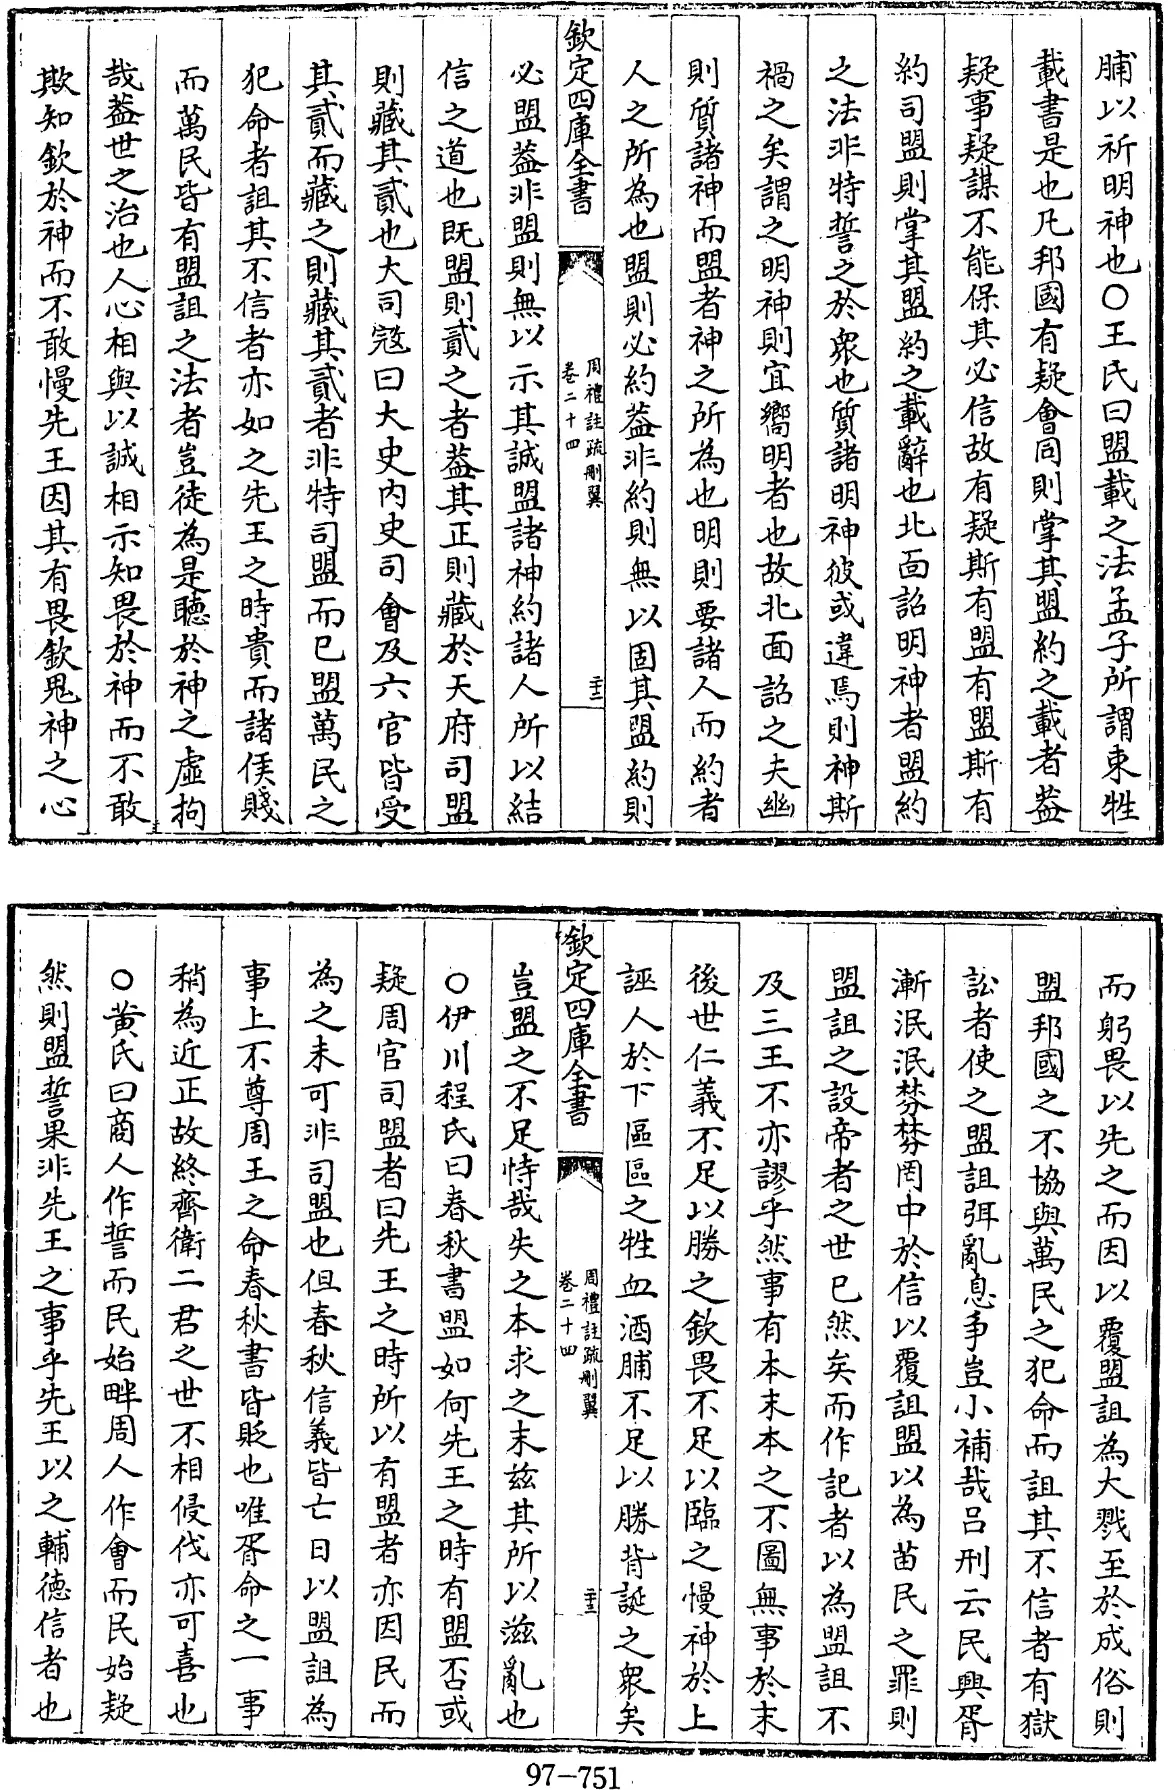 脯以祈明神也〇王氏曰盟載之法孟子所謂束牲
載書是也凡邦國有疑會同則掌其盟約之載者葢
疑事疑謀不能保其必信故有疑斯有盟有盟斯有
約司盟則掌其盟約之載辭也北面詔明神者盟約
之法非特誓之於衆也質諸明神彼或違焉則神斯
禍之矣謂之明神則宜嚮明者也故北面詔之夫幽
則質諸神而盟者神之所為也明則要諸人而約者
人之所為也盟則必約葢非約則無以固其盟約則
欽定四庫全書
周禮註疏刪翼
卷二十四
二十二
必盟葢非盟則無以示其誠盟諸神約諸人所以結
信之道也既盟則貳之者葢其正則藏於天府司盟
則藏其貳也大司寇曰大史内史司會及六官皆受
其貳而藏之則藏其貳者非特司盟而已盟萬民之
犯命者詛其不信者亦如之先王之時貴而諸侯賤
而萬民皆有盟詛之法者豈徒為是聽於神之虛拘
哉葢世之治也人心相與以誠相示知畏於神而不敢
欺知欽於神而不敢慢先王因其有畏欽鬼神之心
而躬畏以先之而因以覆盟詛為大戮至於成俗則
盟邦國之不協與萬民之犯命而詛其不信者有獄
訟者使之盟詛弭亂息爭豈小補哉呂刑云民興胥
漸泯泯棼棼罔中於信以覆詛盟以為苗民之罪則
盟詛之設帝者之世已然矣而作記者以為盟詛不
及三王不亦謬乎然事有本末本之不圖無事於末
後世仁義不足以勝之欽畏不足以臨之慢神於上
誣人於下區區之牲血酒脯不足以勝背誕之衆矣
欽定四庫全書
周禮註疏刪翼
卷二十四
二十三
豈盟之不足恃哉失之本求之末兹其所以滋亂也
〇伊川程氏曰春秋書盟如何先王之時有盟否或
疑周官司盟者曰先王之時所以有盟者亦因民而
為之未可非司盟也但春秋信義皆亡日以盟詛為
事上不尊周王之命春秋書皆貶也唯胥命之一事
稍為近正故終齊衛二君之世不相侵伐亦可喜也
〇黄氏曰商人作誓而民始畔周人作會而民始疑
然則盟誓果非先王之事乎先王以之輔德信者也
97-751